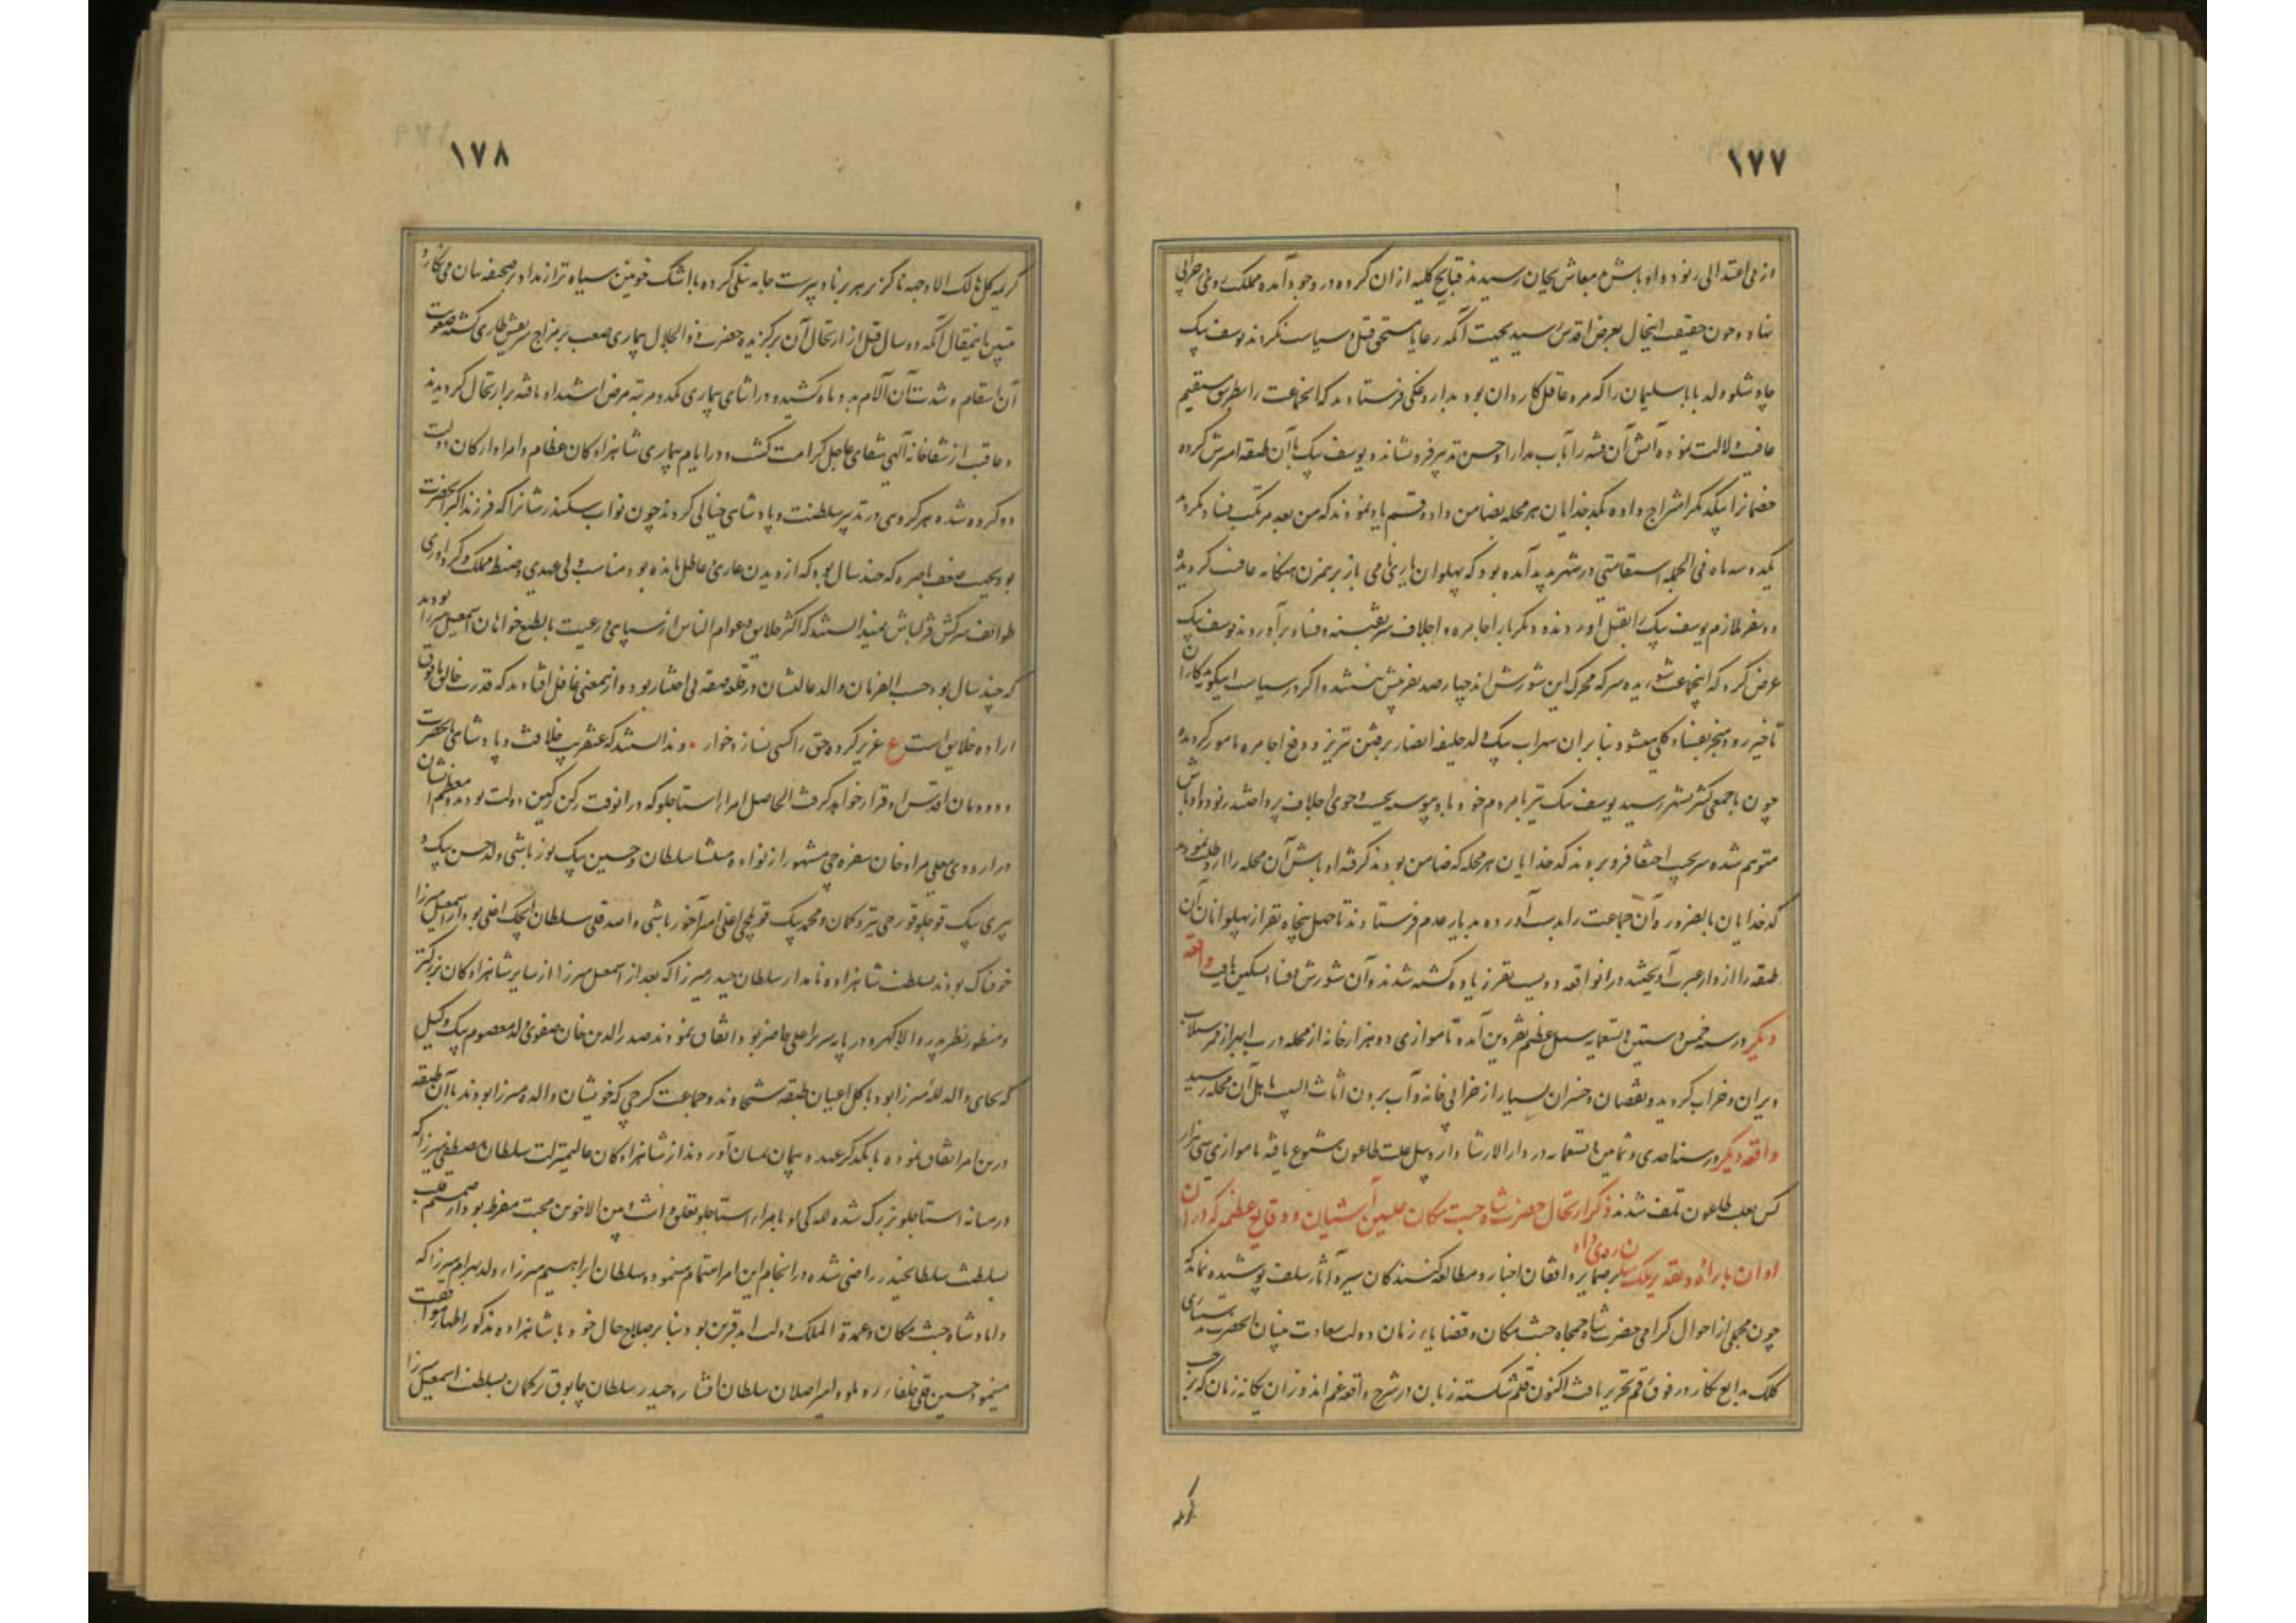 ١٧٧
از بی اعتدالی رنود و اوباش معاش بجان رسیدند قبایح کلیه ازان گروه در وجود آمده مملکت روی خرابی
نهاد و چون حقیقت اینحال بعرض اقدس رسید بجهت آنکه رعایا مستحق قتل و سیاست نگردند یوسف بیک
چاوشلو ولد بابا سلیمان را که مرد عاقل کاردان بود بداروغگی فرستادند که انجماعت را بطریق مستقیم
عافیت دلالت نموده آتش آن فتنه را بآب مدارا و حسن تدبیر فرونشاند و یوسف بیک با آن طبقه امیزش کرده
خصمانرا بیکدیگر امتزاج داده کدخدایان هر محله بضامن داد و قسم یاد نمودند که من بعد مرتکب فساد نگردند
یکدو سه ماه فی الجمله استقامتی در شهر پدید آمده بود که پهلوانان باز برهمزن هنگامه عافیت گردیده
دو سه نفر ملازم یوسف بیک را بقتل اوردند و دیگر بار اجامره و اجلاف سر بفتنه و فساد برآوردند یوسف بیک
عرض کرد که اینجماعت شوریده سر که محرک این شورش اند چهارصد نفر بیش نیستند و اگر در سیاست اینگونه بدکاران
تاخیر رود منجر بفساد کلی میشود بنا بران سهراب بیک ولد خلیفه انصار برفتن تبریز و دفع اجامره مامور گردیده
چون با جمعی کثیر بشهر رسید یوسف بیک نیز با مردم خود باو پیوسته بجست و جوی اجلاف پرداختند رنود و اوباش
متوهم شده سر بجیب اختفا فرو بردند کدخدایان هر محله که ضامن بودند گرفته اوباش آن محله را ازو طلب نمودند
کدخدایان بالضروره آن جماعت را بدست آورده بدیار عدم فرستادند تا چهل پنجاه نفر از پهلوانان آن
طبقه را از دار عبرت آویختند در انواقعه دویست نفر زیاده کشته شدند و آن شورش و فساد تسکین یافت واقعه
دیگر در سنه خمس و ستین و تسعمایه سیل عظیم بقزوین آمده تا موازی دو هزار خانه از محله درب ابهر از ممر سیلاب
ویران و خراب گردید و نقصان و خسران بسیار از خرابی خانه و آب بردن اثاث البیت باهل آن محله رسید
واقعه دیگر در سنه احدی و ثمانین و تسعمایه در دار الارشاد اردبیل علت طاعون شیوع یافته تا موازی سی هزار
کس بعلت طاعون تلف شدند ذکر ارتحال حضرت شاه جنت مکان علیین آشیان و وقایع عظیمه که در آن
اوان باراده و تقدیر ملک منان روی داد بر ضمایر واقفان اخبار و مطالعه کنندگان سیر و آثار سلف پوشیده نماند که
چون مجملی از احوال گرامی حضرت شاه جمجاه جنت مکان و قضایاء زمان دولت سعادت بنیان انحضرت بدستیاری
کلک بدایع نگار در فوق رقم تحریر یافت اکنون قلم شکسته زبان در شرح واقعه غم اندوز آن یگانه زمان که بر حسب
کریمه
١٧٨
کریمه کل شی هالک الا وجهه ناگزیر هر برنا و پیرست جامه نیلی کرده با اشک خونین سیاه تر از مداد بر صحیفه بیان می نگارد
مبین اینمقال آنکه دو سال قبل از ارتحال آن برگزیده حضرت ذو الجلال بیماری صعب بر مزاج شریفش طاری گشته صعوبت
آن اسقام و شدت آن آلام بدو ماه کشیده و در اثنای بیماری یکدو مرتبه مرض اشتداد یافته بر ارتحال گردیدند
و عاقبت از شفاخانه الهی شفای عاجل کرامت گشت و در ایام بیماری شاهزادگان عظام و امرا و ارکان دولت
دو گروه شده هر گروهی در تدبیر سلطنت و پادشاهی خیالی کردند چون نواب سکندر شانرا که فرزند اکبر انحضرت
بود بجهت ضعف باصره که چند سال بود که از دیدن عاری و عاطل مانده بود مناسب ولی عهدی و ضبط مملکت و گرداوری
طوائف سرکش قزلباش نمیدانستند که اکثر خلایق و عوام الناس از سپاهی و رعیت بالطبع خواهان اسمعیل میرزا بودند
که چند سال بود حسب الفرمان والد عالیشان در قلعه قهقهه بی اختیار بود و ازینمعنی غافل افتادند که قدرت خالق مافوق
اراده خلایق است ع عزیز کرده حق را کسی نسازد خوار . و ندانستند که عنقریب خلافت و پادشاهی بانحضرت
و دودمان اقدس او قرار خواهد گرفت الحاصل امراء استاجلو که در انوقت رکن رکین دولت بودند و معظم ایشان
در اردوی معلی مراد خان سفره چی مشهور از نواده منتشا سلطان و حسین بیک یوزباشی ولد حسن بیک و
پیری بیک قوچلو قورچی تیر و کمان و محمد بیک قویلچی اغلی امیر آخور باشی و اسد قلی سلطان ایجک اغلی بود از اسمعیل میرزا
خوفناک بودند بسلطنت شاهزاده نامدار سلطان حیدر میرزا که بعد از اسمعیل میرزا از سایر شاهزادگان بزرکتر
و منظور نظر پدر والا گهر و در پایه سریر اعلی حاضر بود اتفاق نمودند صدر الدین خان صفوی ولد معصوم بیک وکیل
که بجای والد لله میرزا بود با کل اعیان طبقه شیخاوند و جماعت گرجی که خویشان والده میرزا بودند با آن طبقه
درین امر اتفاق نموده با یکدگر عهد و پیمان بمیان آوردند از شاهزادگان عالیمنزلت سلطان مصطفی میرزا که
در میانه استاجلو بزرگ شده للگی او بامراء استاجلو تعلق داشت و بین الاخوین محبت مفرط بود از صمیم قلب
بسلطنت سلطان حیدر راضی شده در انجام این امر اهتمام مینمود و سلطان ابراهیم میرزاء ولد بهرام میرزا که
داماد شاه جنت مکان و عمدة الملک دولت ابد قرین بود بنا بر صلاح حال خود با شاهزاده مذکور اظهار موافقت
مینمود حسین قلی خلفاء روملو و امیر اصلان سلطان افشار و حیدر سلطان چابوق ترکمان بسلطنت اسمعیل میرزا